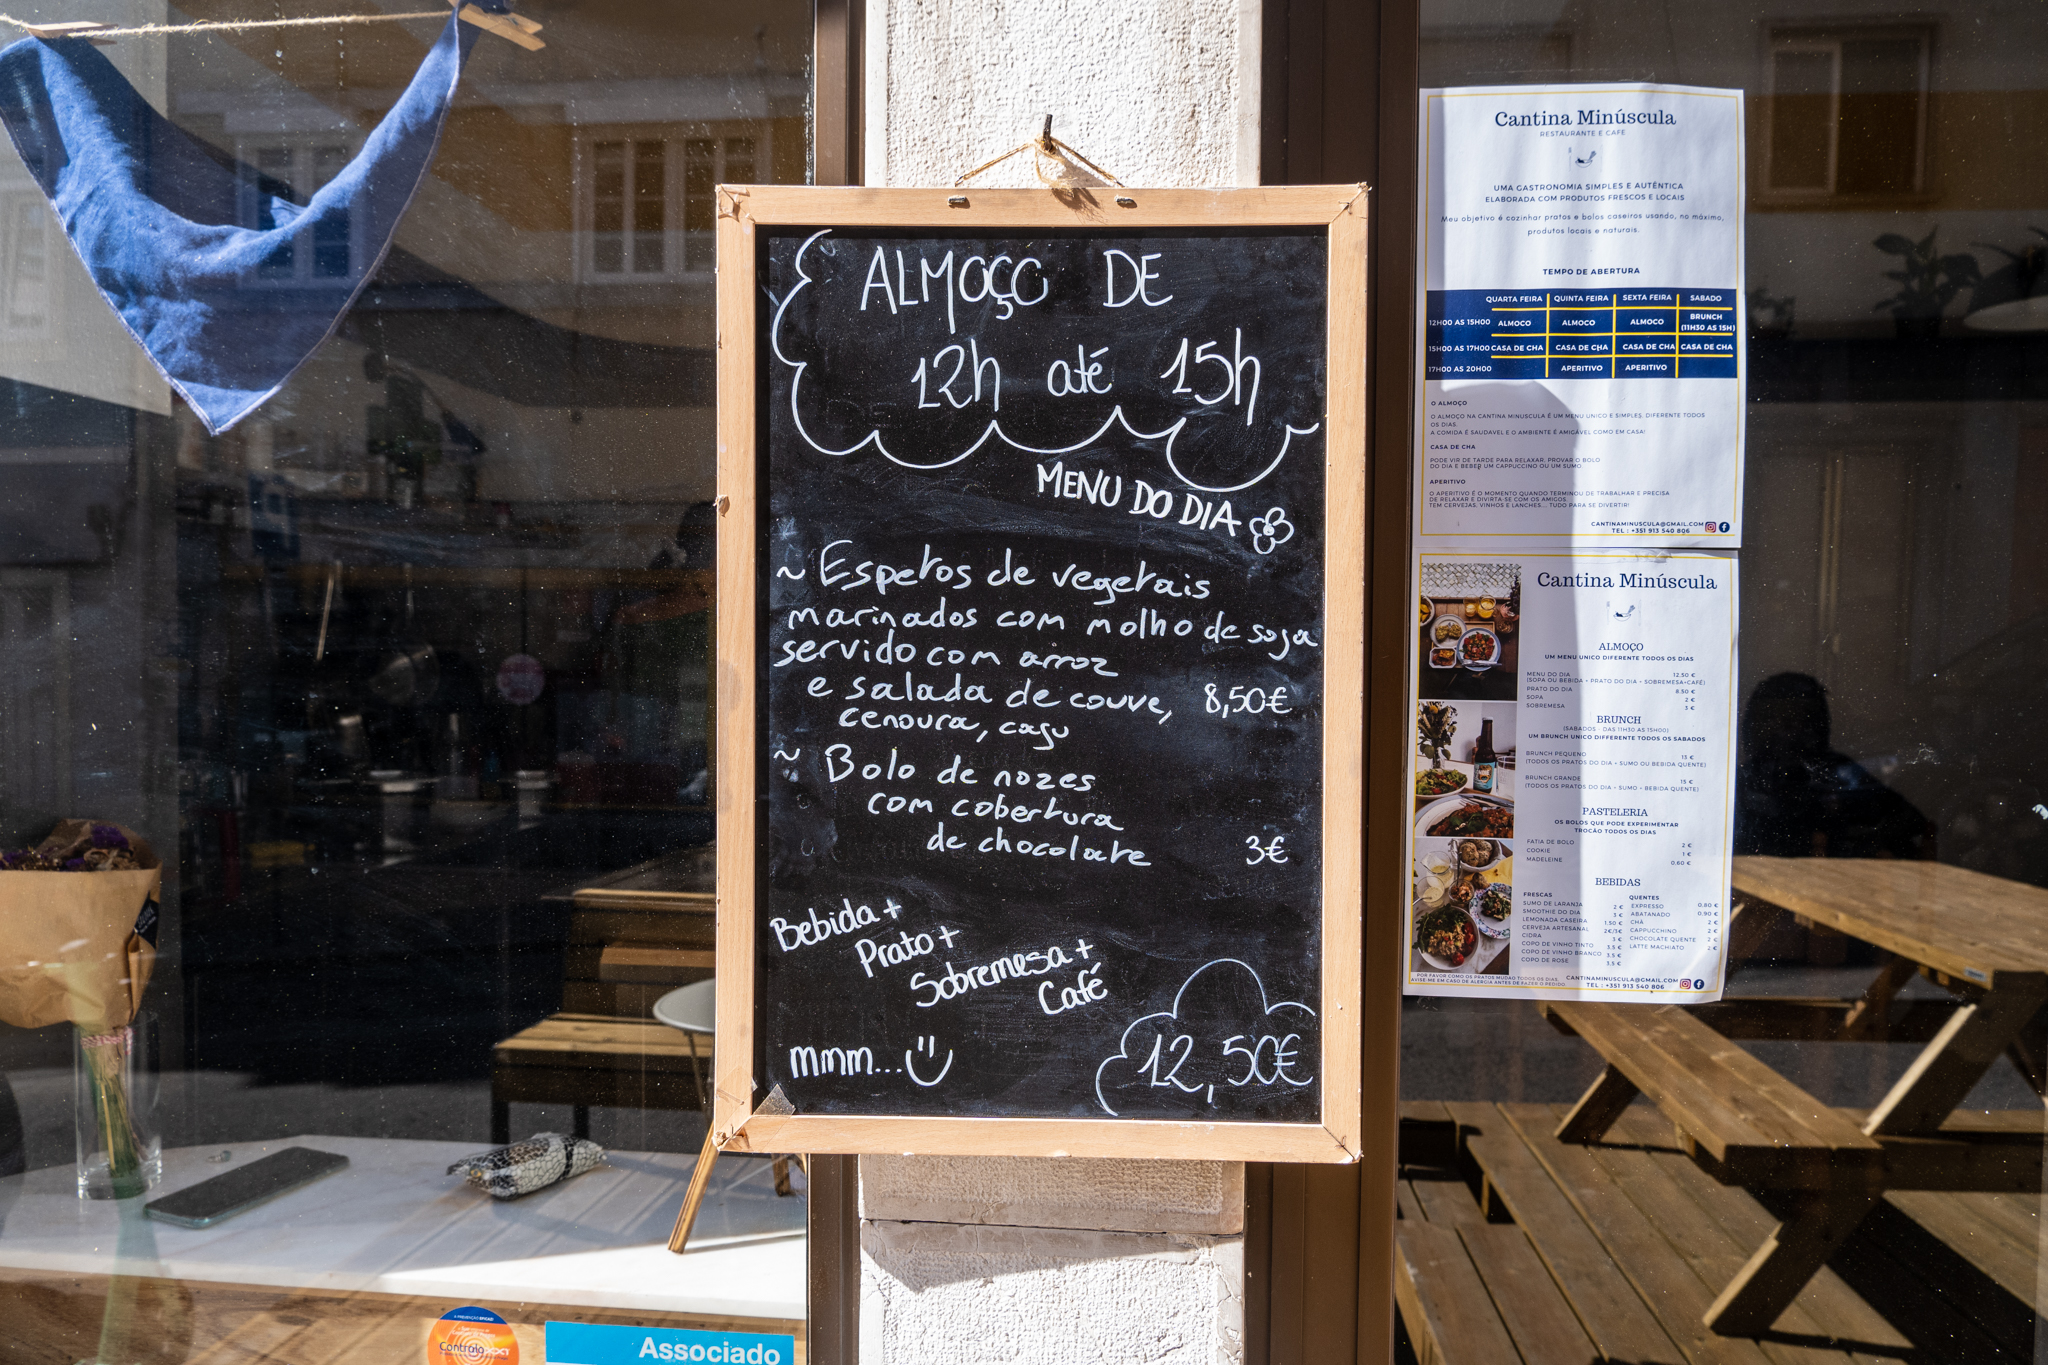 ALMOÇO DE
12h até 15h
MENU DO DIA
~ Espetos de vegetais
marinados com molho de soja
servido com arroz
e salada de couve, 8,50€
cenoura, caju
~ Bolo de nozes
com cobertura
de chocolate 3€
Bebida +
Prato +
Sobremesa +
Café
mmm...
12,50€
Cantina Minúscula
RESTAURANTE E CAFE
UMA GASTRONOMIA SIMPLES E AUTÊNTICA
ELABORADA COM PRODUTOS FRESCOS E LOCAIS
Meu objetivo é cozinhar pratos e bolos caseiros usando, no máximo,
produtos locais e naturais.
TEMPO DE ABERTURA
QUARTA FEIRA QUINTA FEIRA SEXTA FEIRA SABADO
12H00 AS 15H00 ALMOCO ALMOCO ALMOCO BRUNCH
(11H30 AS 15H)
15H00 AS 17H00 CASA DE CHA CASA DE CHA CASA DE CHA CASA DE CHA
17H00 AS 20H00 APERITIVO APERITIVO
O ALMOÇO
O ALMOÇO NA CANTINA MINUSCULA É UM MENU UNICO E SIMPLES, DIFERENTE TODOS
OS DIAS.
A COMIDA É SAUDAVEL E O AMBIENTE É AMIGÁVEL COMO EM CASA!
CASA DE CHA
PODE VIR DE TARDE PARA RELAXAR, PROVAR O BOLO
DO DIA E BEBER UM CAPPUCCINO OU UM SUMO
APERITIVO
O APERITIVO É O MOMENTO QUANDO TERMINOU DE TRABALHAR E PRECISA
DE RELAXAR E DIVIRTA-SE COM OS AMIGOS
TEM CERVEJAS, VINHOS E LANCHES... TUDO PARA SE DIVERTIR!
CANTINAMINUSCULA@GMAIL.COM
TEL : +351 913 540 806
Cantina Minúscula
ALMOÇO
UM MENU UNICO DIFERENTE TODOS OS DIAS
MENU DO DIA 12,50 €
(SOPA OU BEBIDA + PRATO DO DIA + SOBREMESA+CAFÉ)
PRATO DO DIA 8.50 €
SOPA 2 €
SOBREMESA 3 €
BRUNCH
(SABADOS - DAS 11H30 AS 15H00)
UM BRUNCH UNICO DIFFERENTE TODOS OS SABADOS
BRUNCH PEQUENO 13 €
(TODOS OS PRATOS DO DIA + SUMO OU BEBIDA QUENTE)
BRUNCH GRANDE 15 €
(TODOS OS PRATOS DO DIA + SUMO + BEBIDA QUENTE)
PASTELERIA
OS BOLOS QUE PODE EXPERIMENTAR
TROCÃO TODOS OS DIAS
FATIA DE BOLO 2 €
COOKIE 1 €
MADELEINE 0,60 €
BEBIDAS
FRESCAS
SUMO DE LARANJA 2 €
SMOOTHIE DO DIA 3 €
LEMONADA CASEIRA 1.50 €
CERVEJA ARTESANAL 2€/3€
CIDRA 3 €
COPO DE VINHO TINTO 3.5 €
COPO DE VINHO BRANCO 3.5 €
COPO DE ROSE 3.5 €
QUENTES
EXPRESSO 0.80 €
ABATANADO 0,90 €
CHÁ 2 €
CAPPUCCINO 2 €
CHOCOLATE QUENTE 2 €
LATTE MACHIATO 2 €
POR FAVOR COMO OS PRATOS MUDAO TODOS OS DIAS,
AVISE-ME EM CASO DE ALERGIA ANTES DE FAZER O PEDIDO
CANTINAMINUSCULA@GMAIL.COM
TEL : +351 913 540 806
Associado